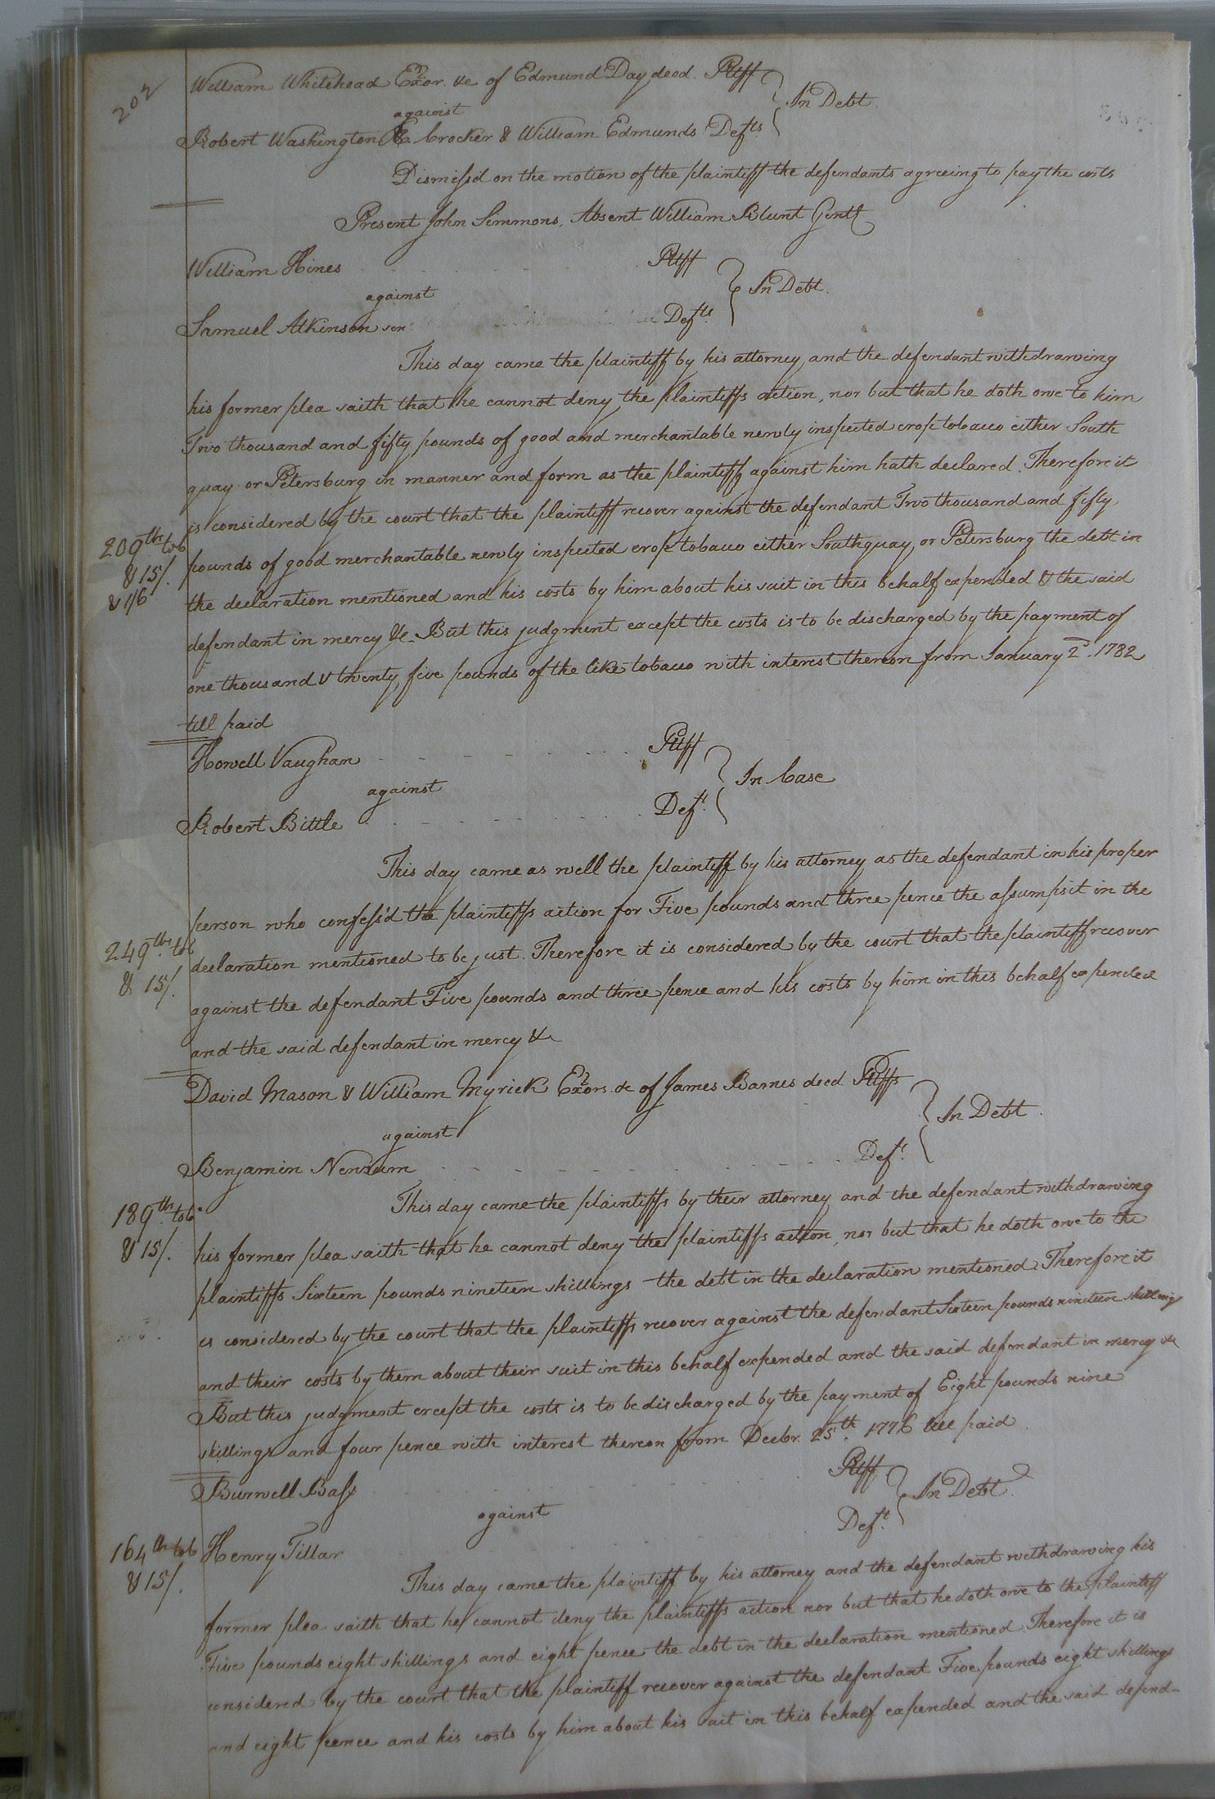 202
William Whitehead Exor. &c of Edmund Day decd. Pltff
against } In Debt.
Robert Washington Crocker & William Edmunds Defts.
Dismissd on the motion of the plaintiff the defendants agreeing to pay the costs
Present John Simmons. Absent William Blunt Gentl
William Hines Pltff
against } In Debt.
Samuel Atkinson sen. Defts.
This day came the plaintiff by his attorney and the defendant withdrawing
his former plea saith that he cannot deny the plaintiffs action, nor but that he doth owe to him
Two thousand and fifty pounds of good and merchantable newly inspected crop tobacco either South
quay or Petersburg in manner and form as the plaintiff against him hath declared. Therefore it
is considered by the court that the plaintiff recover against the defendant Two thousand and fifty
209th tob
pounds of good merchantable newly inspected crop tobacco either Southquay, or Petersburg the debt in
& 15/.
& 1/6
the declaration mentioned and his costs by him about his suit in this behalf expended & the said
defendant in mercy &c. But this judgment except the costs is to be discharged by the payment of
one thousand & twenty five pounds of the like tobacco with interest thereon from January 2d. 1782
till paid
Howell Vaughan Pltff
against } In Case
Robert Bittle Deft.
This day came as well the plaintiff by his attorney as the defendant in his proper
person who confess'd the plaintiffs action for Five pounds and three pence the assumpsit in the
249th tob
declaration mentioned to be just. Therefore it is considered by the court that the plaintiff recover
& 15/.
against the defendant Five pounds and three pence and his costs by him in this behalf expended
and the said defendant in mercy &c
David Mason & William Myrick Exors. &c of James Barnes decd Pltffs
against } In Debt.
Benjamin Newsum Deft.
189th tob
This day came the plaintiffs by their attorney and the defendant withdrawing
& 15/.
his former plea saith that he cannot deny the plaintiffs action, nor but that he doth owe to the
plaintiffs Sixteen pounds nineteen shillings the debt in the declaration mentioned Therefore it
is considered by the court that the plaintiffs recover against the defendant Sixteen pounds nineteen shillings
and their costs by them about their suit in this behalf expended and the said defendant in mercy &c
But this judgment except the costs is to be discharged by the payment of Eight pounds nine
skillings and four pence with interest thereon from Decbr. 25th. 1776 till paid
Burwell Bass Pltff
against } In Debt.
Deft.
164th tob
Henry Tillar
& 15/.
This day came the plaintiff by his attorney and the defendant withdrawing his
former plea saith that he cannot deny the plaintiffs action nor but that he doth owe to the plaintiff
Five pounds eight shillings and eight pence the debt in the declaration mentioned Therefore it is
considered by the court that the plaintiff recover against the defendant Five pounds eight shillings
and eight pence and his costs by him about his suit in this behalf expended and the said defend-